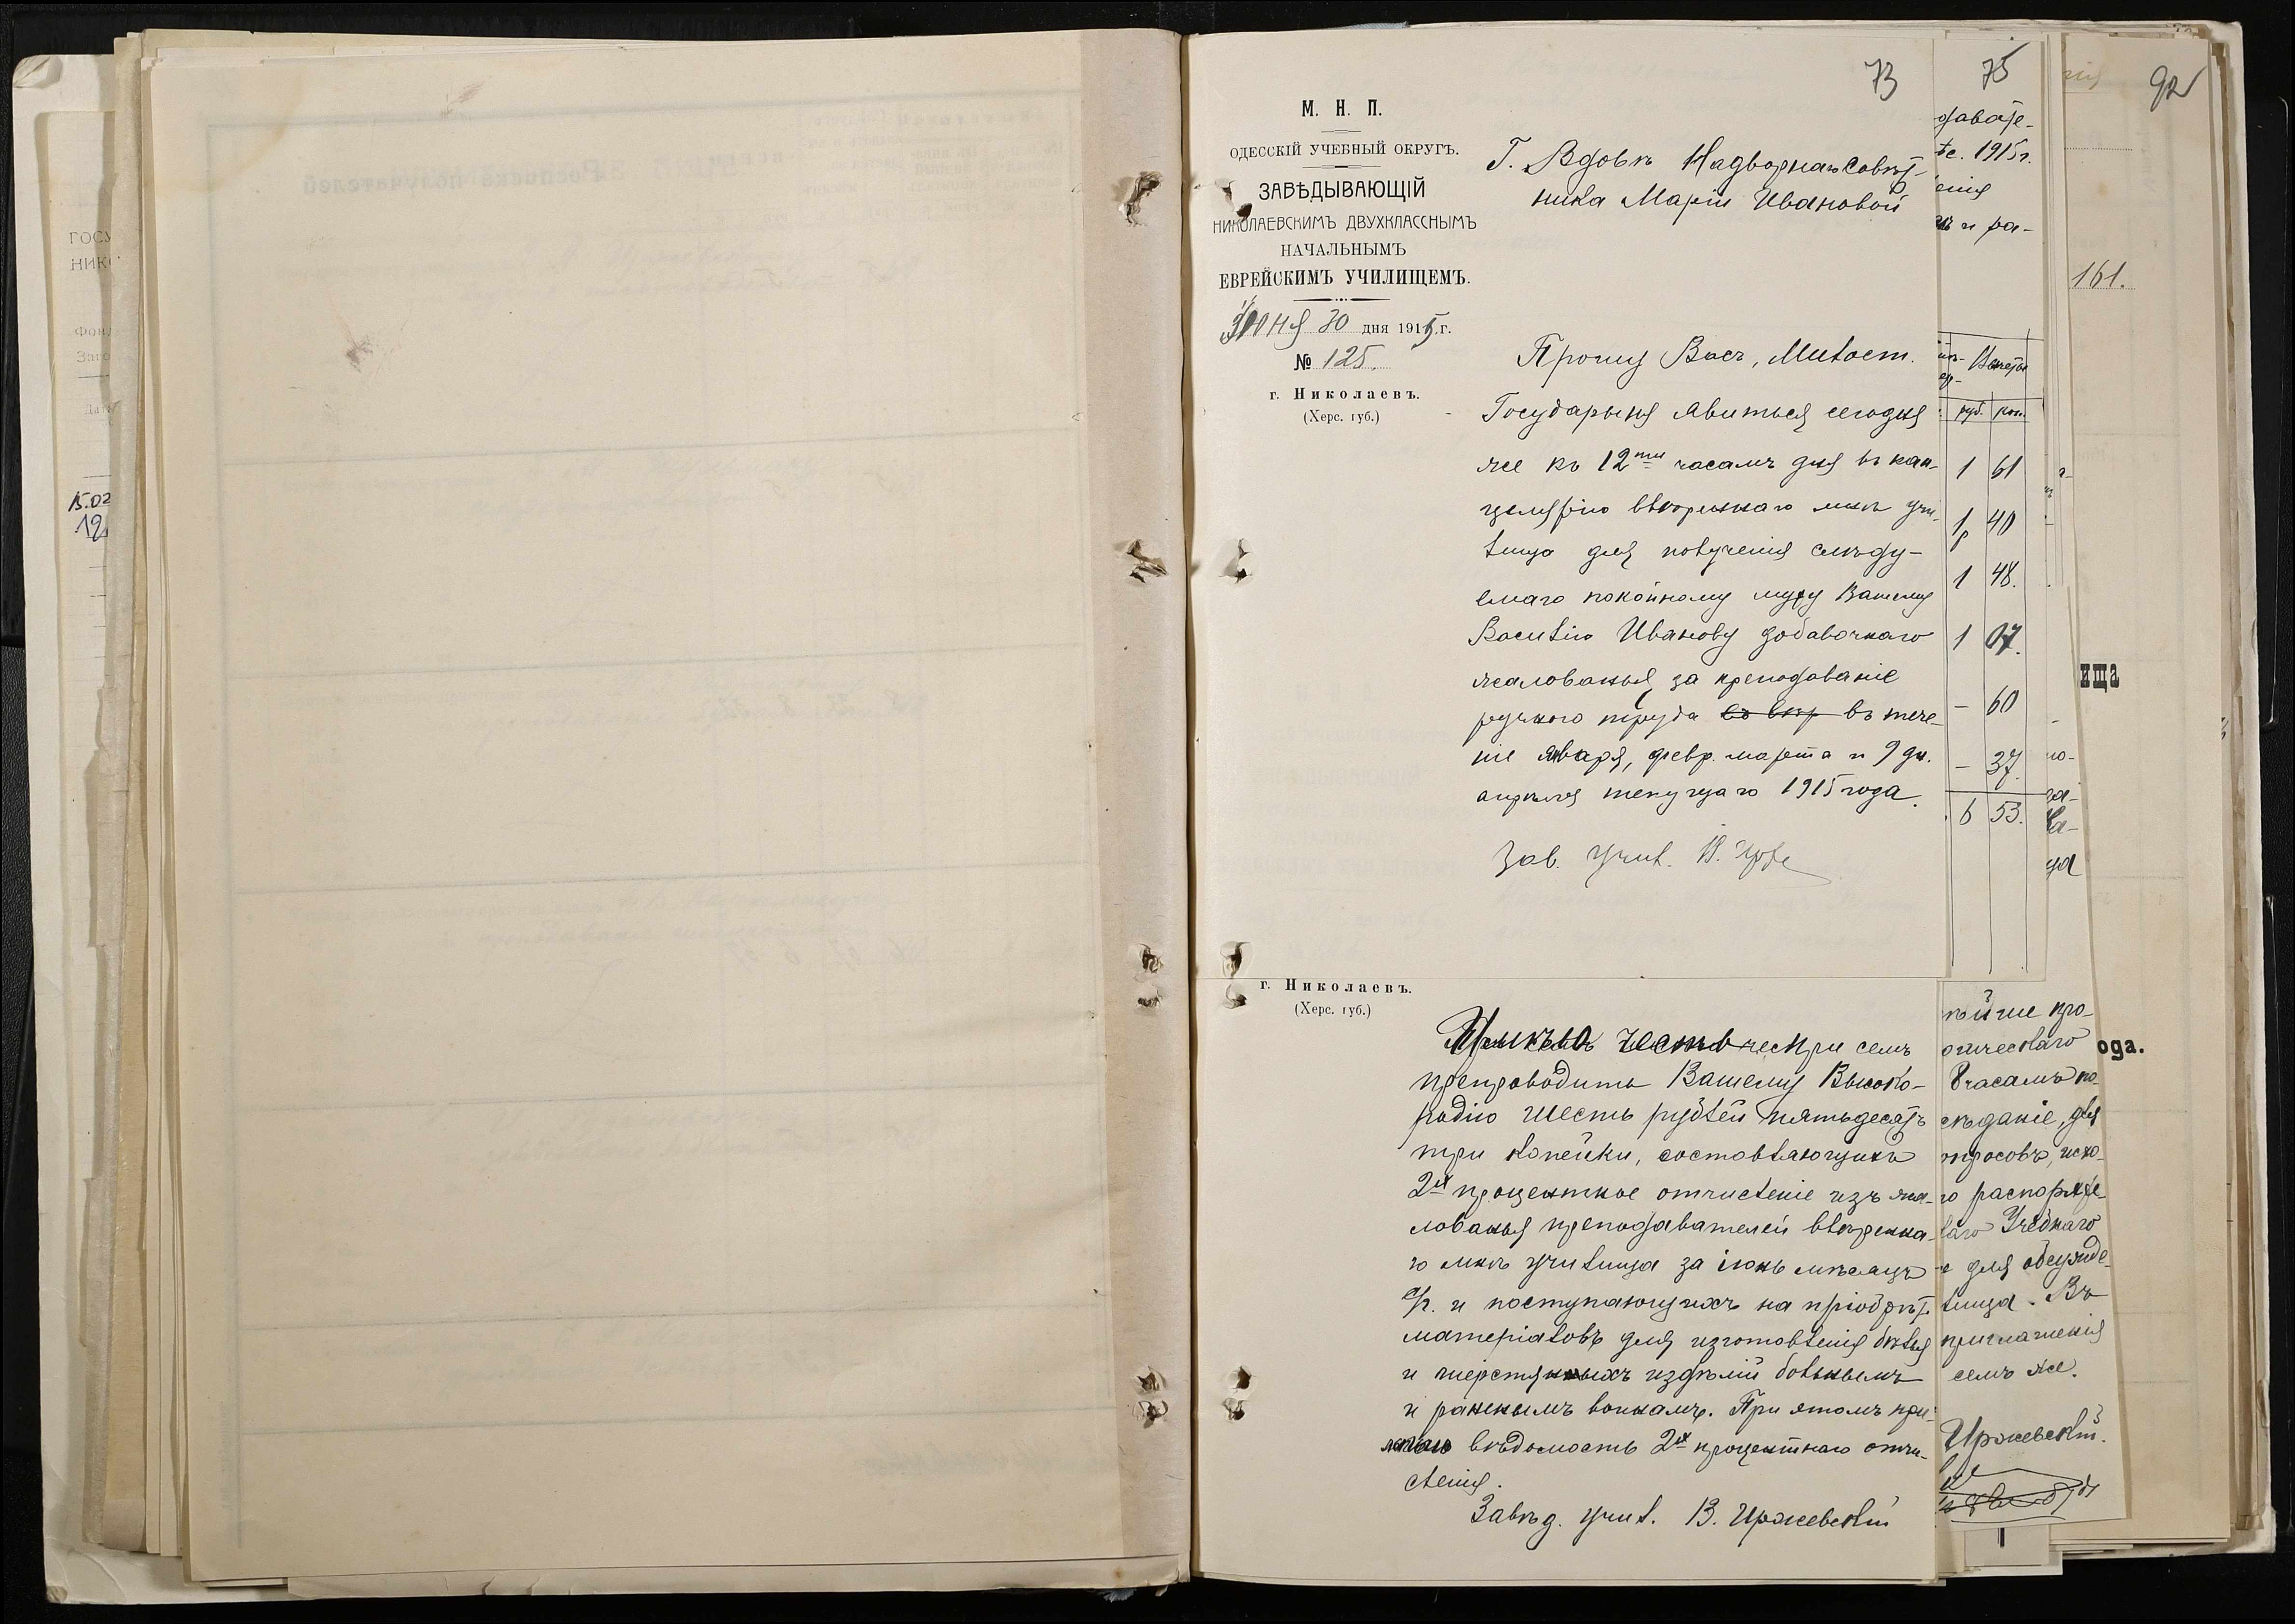 73
М. Н. П.
ОДЕССКІЙ УЧЕБНЫЙ ОКРУГЪ.
ЗАВѢДЫВАЮЩІЙ
НИКОЛАЕВСКИМЪ ДВУХКЛАССНЫМЪ
НАЧАЛЬНЫМЪ
ЕВРЕЙСКИМЪ УЧИЛИЩЕМЪ.
30 дня 1915 г.
№ 125.
г. Николаевъ.
(Херс. губ.)
Г. Вдовѣ Надворнаго Совѣт-
ника Маріи Ивановой
Прошу Васъ, Милост.
Государыня явиться сегодня
же къ 12ти часамъ дня въ кан-
целярію ввѣреннаго мнѣ учи-
лища для полученія слѣду-
емаго покойному мужу Вашему
Василію Иванову добавочнаго
жалованья за преподаваніе
ручного труда въ тече-
ніе января, февр. марта и 9 дн.
апрѣля текущаго 1915 года.
Зав. учил.
г. Николаевъ.
(Херс. губ.)
при семъ
препроводить Вашему Высоко-
родію шесть рублей пятьдесятъ
три копейки, составляющихъ
2х процентное отчисленіе изъ жа-
лованья преподавателей ввѣренна-
го мнѣ училища за іюнь мѣсяцъ
с/г. и поступающихъ на пріобрѣт.
матеріаловъ для изготовленія бѣлья
и шерстяныхъ издѣлій больнымъ
и раненымъ воинамъ. При этомъ при-
вѣдомость 2х процентнаго отчи-
сленія.
Завѣд. учил. В. Иржевскій
75
давате-
1915 г.
енія
и ра-
Вычеты
руб. коп.
1 61
1 40
1 48.
1 07.
— 60
— 37.
6 53.
нѣйше про-
гическаго
8 часамъ по-
сѣданіе, для
просовъ, исхо-
го распоряже-
Учебнаго
для обсужде-
лища. Въ
приглашенія
семъ же.
Иржевскій.
92
161.
ища
ода.
ГОСУ
НИКО
Фонд
Заго
15.02
12